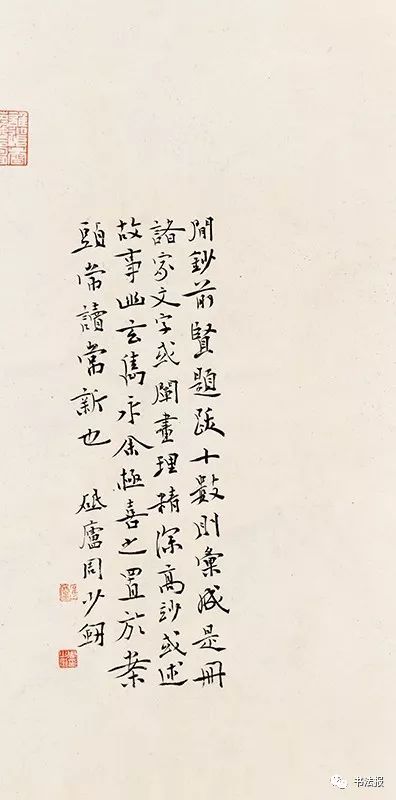 閒鈔前賢題跋十數則彙成是冊
諸家文字或闡畫理精深高妙或述
故事幽玄雋永余極喜之置於案
頭常讀常新也 砥廬周少劍
书法报